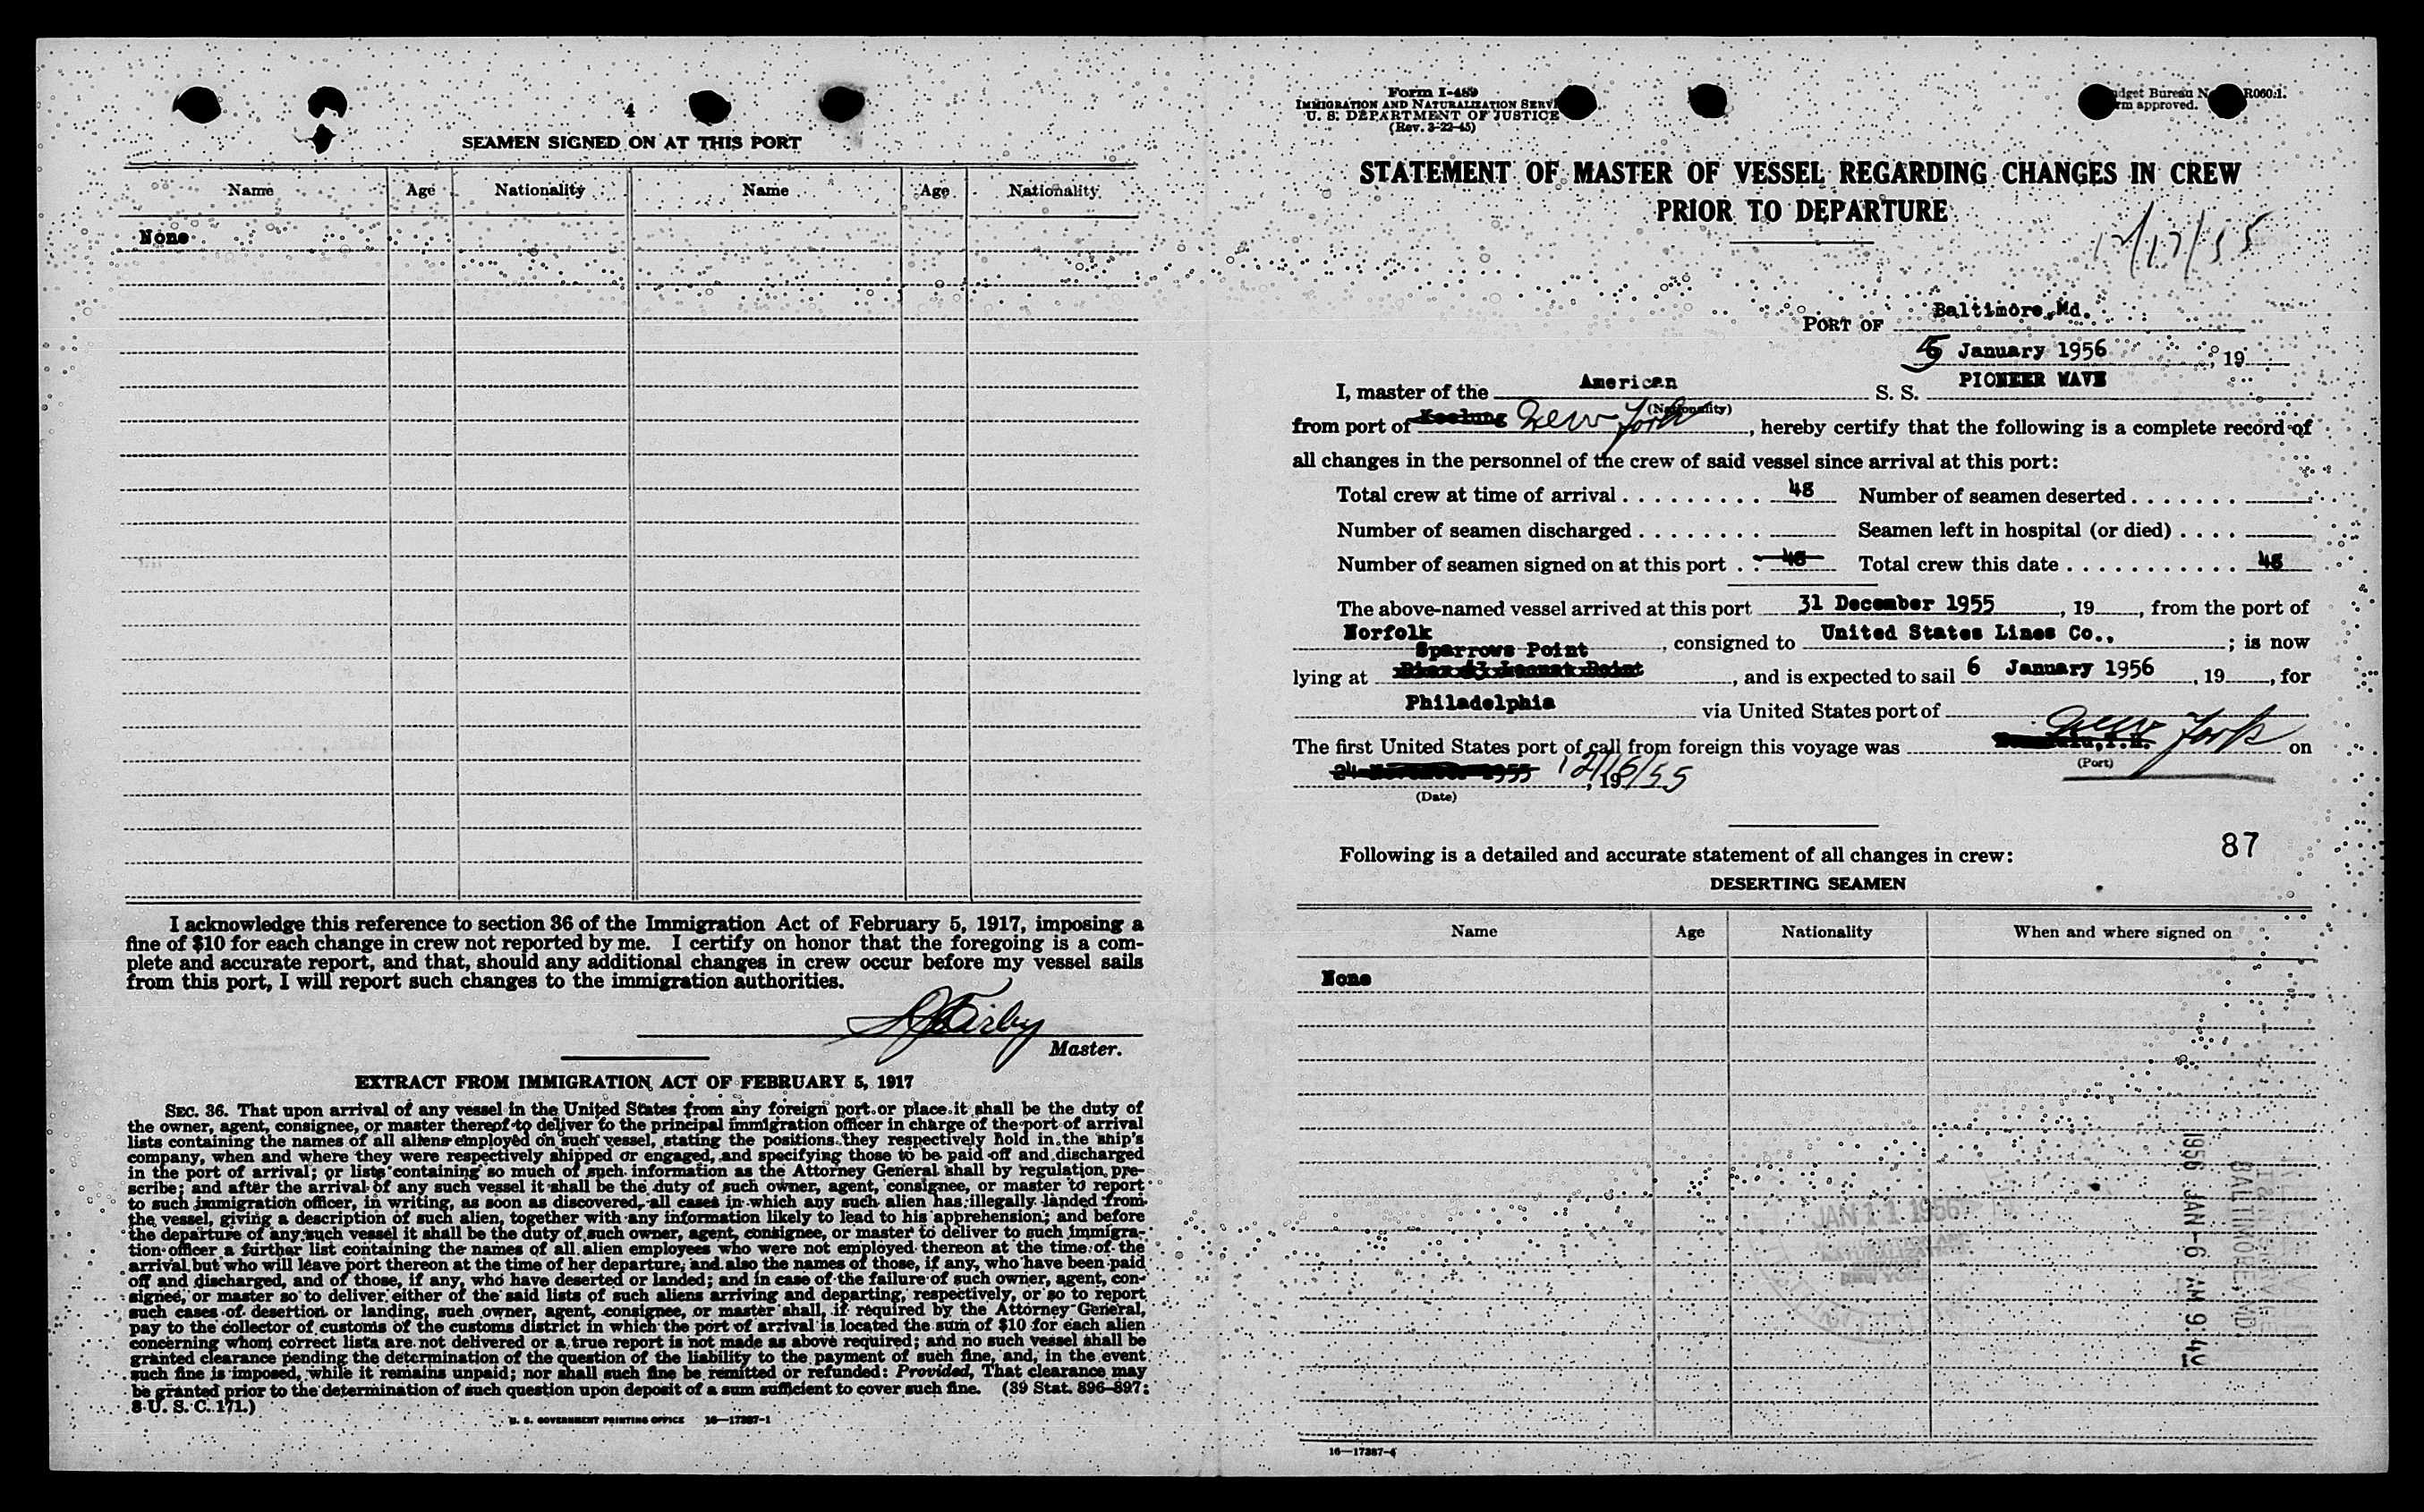 4
SEAMEN SIGNED ON AT THIS PORT
Name Age Nationality Name Age Nationality
None
I acknowledge this reference to section 36 of the Immigration Act of February 5, 1917, imposing a
fine of $10 for each change in crew not reported by me. I certify on honor that the foregoing is a com-
plete and accurate report, and that, should any additional changes in crew occur before my vessel sails
from this port, I will report such changes to the immigration authorities.
Master.
EXTRACT FROM IMMIGRATION ACT OF FEBRUARY 5, 1917
SEC. 36. That upon arrival of any vessel in the United States from any foreign port or place it shall be the duty of
the owner, agent, consignee, or master thereof to deliver to the principal immigration officer in charge of the port of arrival
lists containing the names of all aliens employed on such vessel, stating the positions they respectively hold in the ship's
company, when and where they were respectively shipped or engaged, and specifying those to be paid off and discharged
in the port of arrival; or lists containing so much of such information as the Attorney General shall by regulation pre-
scribe; and after the arrival of any such vessel it shall be the duty of such owner, agent, consignee, or master to report
to such immigration officer, in writing, as soon as discovered, all cases in which any such alien has illegally landed from
the vessel, giving a description of such alien, together with any information likely to lead to his apprehension; and before
the departure of any such vessel it shall be the duty of such owner, agent, consignee, or master to deliver to such immigra-
tion officer a further list containing the names of all alien employees who were not employed thereon at the time of the
arrival but who will leave port thereon at the time of her departure, and also the names of those, if any, who have been paid
off and discharged, and of those, if any, who have deserted or landed; and in case of the failure of such owner, agent, con-
signee, or master so to deliver either of the said lists of such aliens arriving and departing, respectively, or so to report
such cases of desertion or landing, such owner, agent, consignee, or master shall, if required by the Attorney General,
pay to the collector of customs of the customs district in which the port of arrival is located the sum of $10 for each alien
concerning whom correct lists are not delivered or a true report is not made as above required; and no such vessel shall be
granted clearance pending the determination of the question of the liability to the payment of such fine, and, in the event
such fine is imposed, while it remains unpaid; nor shall such fine be remitted or refunded: Provided, That clearance may
be granted prior to the determination of such question upon deposit of a sum sufficient to cover such fine. (39 Stat. 896-897;
8 U. S. C. 171.)
U. S. GOVERNMENT PRINTING OFFICE 16—17387-1
Form I-489
IMMIGRATION AND NATURALIZATION SERVI
U. S. DEPARTMENT OF JUSTICE
(Rev. 3-22-45)
dget Bureau N R060.1.
rm approved.
STATEMENT OF MASTER OF VESSEL REGARDING CHANGES IN CREW
PRIOR TO DEPARTURE
12/17/55
PORT OF Baltimore, Md.
5 January 1956, 19
I, master of the American S. S. PIONEER WAVE
(Nationality)
from port of Keelung New York, hereby certify that the following is a complete record of
all changes in the personnel of the crew of said vessel since arrival at this port:
Total crew at time of arrival . . . . . . . . . 48 Number of seamen deserted . . . . . . .
Number of seamen discharged . . . . . . . . Seamen left in hospital (or died) . . . .
Number of seamen signed on at this port . . 48 Total crew this date . . . . . . . . . . . 48
The above-named vessel arrived at this port 31 December 1955, 19, from the port of
Norfolk, consigned to United States Lines Co.,; is now
Sparrows Point
lying at Pier #3 Locust Point, and is expected to sail 6 January 1956, 19, for
Philadelphia via United States port of
The first United States port of call from foreign this voyage was New York on
(Port)
24 November 1955 12/16/55, 19
(Date)
87
Following is a detailed and accurate statement of all changes in crew:
DESERTING SEAMEN
Name Age Nationality When and where signed on
None
JAN 11 1956
1956 JAN-6 AM 9:40
BALTIMORE, MD.
16—17387-4